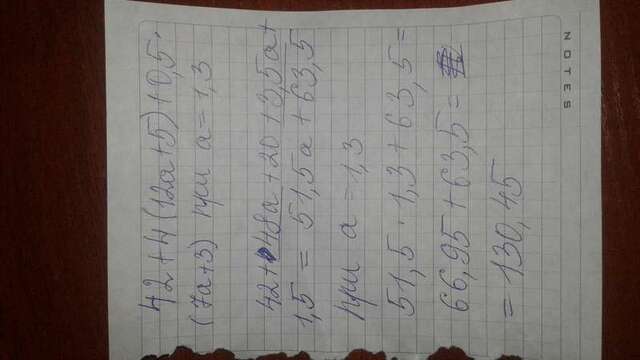 42+4(12a+5)+0,5·
(7a+3) при a=1,3
42+48a+20+3,5a+
1,5 = 51,5a+63,5
при a=1,3
51,5·1,3+63,5=
66,95+63,5=
=130,45
NOTES